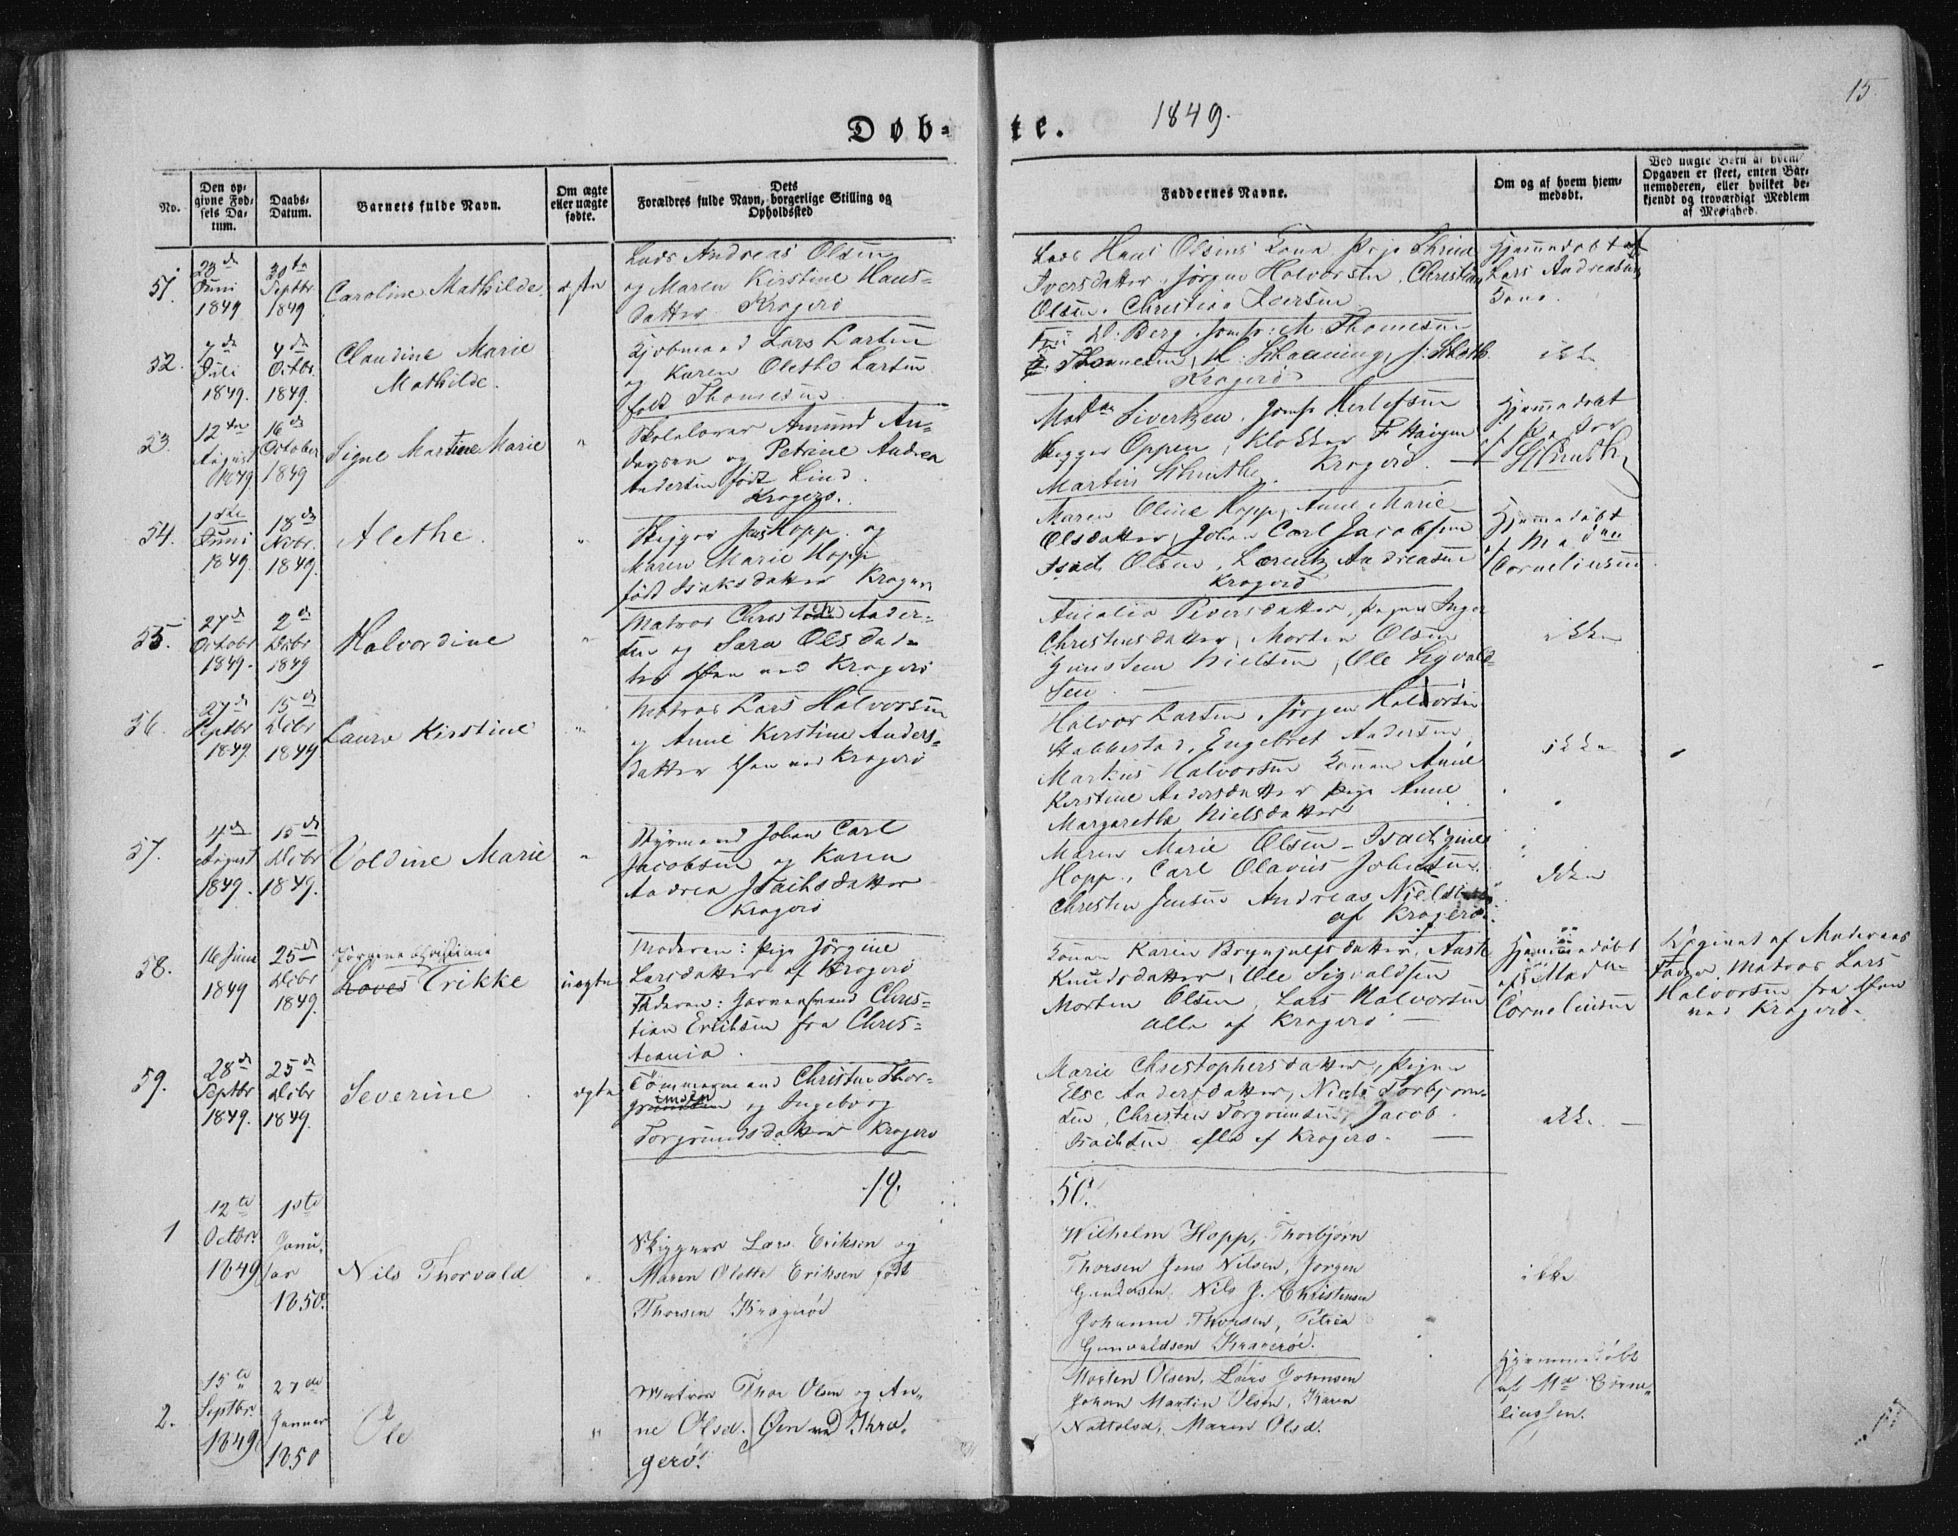 15
1849.
Døb-
te.
No.
Den op-
givne Fød-
sels Da-
tum.
Daabs-
Datum.
Barnets fulde Navn.
Om ægte
eller uægte
fødte.
Dets
Forældres fulde Navn, borgerlige Stilling og
Opholdssted
Faddernes Navne.
Om og af hvem hjem-
medøbt.
Ved uægte Børn af hvem
Opgaven er skeet, enten Bar-
nemoderen, eller hvilket be-
kjendt og troværdigt Medlem
af Menighed.
51.
23de
Juni
1849
30te
Septbr
1849
Caroline Mathilde.
ægte
Lods Andreas Olsen
og Maren Kirstine Hans-
datter Kragerø
Lods Hans Olsens Kone Pige Thrine
Iversdatter, Jørgen Halvorsen, Christian
Olsen, Christian Iversen
Hjemmedøbt af
Lars Andreasens
Kone.
52.
7de
Juli
1849.
4de
Octbr.
1849.
Claudine Marie
Mathilde.
Kjøbmand Lars Larsen
og Karen Olethe Larsen
født Thomesen
Fru D. Berg, Jomfr: M. Thomesen
Thomesen
Kragerø
ikke
53.
12te
August
1849
16de
October
1849
Signe Martine Marie
"
Skolelærer Amund An-
dersen og Petrine Andrea
Andersen født Lind.
Kragerø.
Madm Sivertsen, Jomfr Herlofsen
Skipper Oppen, Klokker
Martin Kragerø.
Hjemmedøbt
54.
1ste
Juni
1849.
18de
Novbr.
1849.
Alethe.
"
Skipper Jens Hopp og
Maren Marie Hopp
født Isaksdatter Kragerø
Maren Oline Hopp, Anne Marie
Olsdatter, Johan Carl Jacobsen
Isach Olsen, Lorentz Andreasen
Kragerø
Hjemmedøbt
af Madme
Corneliusen
55.
27de
Octobr
1849.
2de
Debr
1849
Halvordine
"
Matros Christoph Ander-
sen og Sara Olsdat-
ter Øen ved Kragerø
Amalia Iversdatter, Pigen Inger
Christensdatter, Morten Olsen
Gunstein Nielsen, Ole Sigvald-
sen.
ikke
56.
27de
Septbr
1849.
15de
Debr
1849
Laura Kirstine
"
Matros Lars Halvorsen
og Anne Kirstine Anders-
datter Øen ved Kragerø
Halvor Larsen, Jørgen Halvorsen
Stabbestad, Engebret Andersen,
Markus Halvorsen Konen Anne
Kirstine Andersdatter Pige Anne
Margarethe Nielsdatter
ikke
57.
4de
August
1849.
15de
Debr
1849.
Voldine Marie
"
Styrmand Johan Carl
Jacobsen og Karen
Andrea Isachsdatter
Kragerø
Maren Marie Olsen, Isachgine
Hopp, Carl Olavus Johnsen,
Christen Jensen Andreas Nielsen
af Kragerø.
ikke
58.
16 Juni
1849
25de
Debr
1849.
Jørgine Christiane
Loves Erikke
uægte
Moderen: Pige Jørgine
Larsdatter af Kragerø
Faderen: Garversvend Chris-
tian Eriksen fra Chris-
tiania.
Konen Karen Brynjulfsdatter, Aaste
Knudsdatter, Ole Sigvaldsen
Morten Olsen, Lars Halvorsen
alle af Kragerø
Hjemmedøbt
af Madme
Corneliusen
Opgivet af Moderens
Fader, Matros Lars
Halvorsen fra Øen
ved Kragerø.
59.
28de
Septbr
1849.
25de
Debr
1849.
Severine
ægte
Tømmermand Christen Thor-
grimsen og Ingeborg
Torgrundsdatter Kragerø
Marie Christophersdatter, Pigen
Else Andersdatter, Niels Torbjørn-
sen, Christen Torgrimsen, Jacob
Isachsen alle af Kragerø.
ikke
18
50.
1
12te
Octbr.
1849
1ste
Janu-
ar
1850.
Nils Thorvald
"
Skipper Lars Eriksen og
Maren Olette Eriksen født
Thorsen Kragerøe
Wilhelm Hopp, Thorbjørn
Thorsen Jens Nilsen, Jørgen
Gundersen, Nils J. Christensen
Johanne Thorsen, Petrea
Gunvaldsen Kragerøe.
ikke
2.
15te
Septbr.
1849
27de
Januar
1850
Ole
"
Matros Thor Olsen og An-
ne Olsd. Øen ved Kra-
gerø.
Morten Olsen, Lars Johnsen
Johan Martin Olsen, Karen
Nottolsd, Maren Olsd.
Hjemmedøbt
af Md Corne-
liussen.